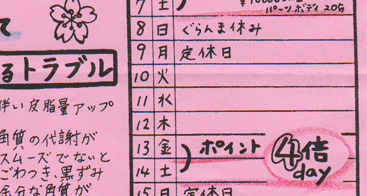 て
るトラブル
伴い皮脂量アップ
角質の代謝が
スムーズでないと
ごわつき、黒ずみ
余分な角質が
7 土
パーツボディ 20分
8 日 ぐらんま休み
9 月 定休日
10 火
11 水
12 木
13 金 ポイント 4倍
14 土 day
15 日 定休日